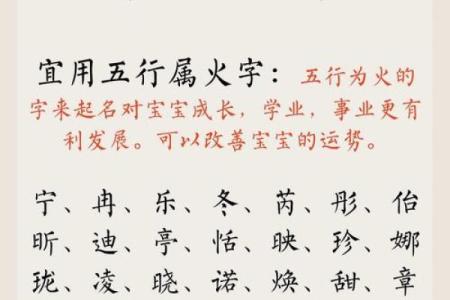 宜用五行属火字：五行为火的
字来起名对宝宝成长，学业，事业更有
利发展。可以改善宝宝的运势。
宁、冉、乐、冬、芮、彤、佁
昕、迪、亭、恬、映、珍、娜
珑、凌、晓、诺、焕、甜、章